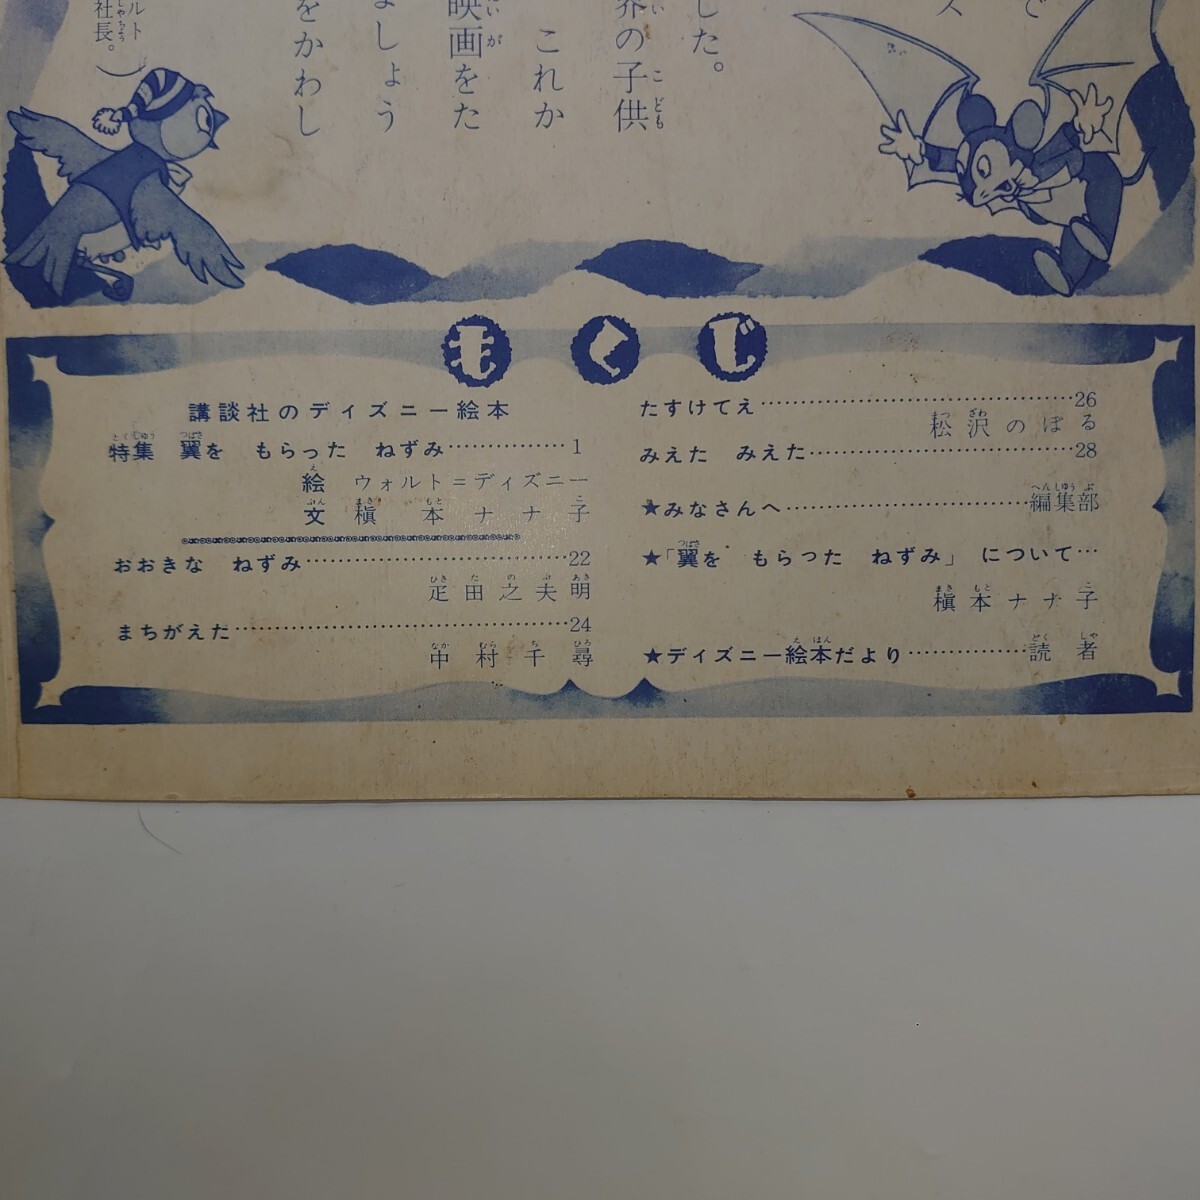 で
ス
した。
界の子供
これか
映画をた
ましょう
をかわし
ルト
社長。）
もくじ
講談社のディズニー絵本
特集 翼を もらった ねずみ……………1
絵 ウォルト＝ディズニー
文 槇本ナナ子
おおきな ねずみ……………22
疋田之夫明
まちがえた……………24
中村千尋
たすけてえ……………26
松沢のぼる
みえた みえた……………28
★みなさんへ……………編集部
★「翼を もらった ねずみ」 について…
槇本ナナ子
★ディズニー絵本だより……………読者